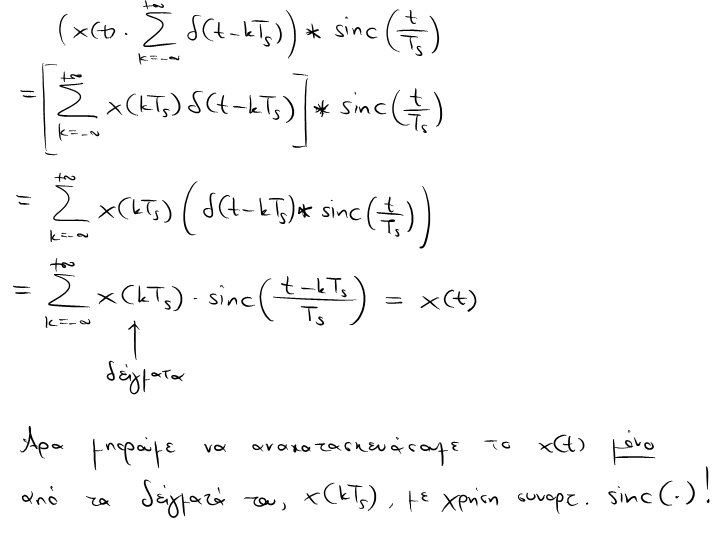 (x(t) · ∑_{k=-∞}^{+∞} δ(t-kTₛ)) * sinc(t/Tₛ)
= [∑_{k=-∞}^{+∞} x(kTₛ) δ(t-kTₛ)] * sinc(t/Tₛ)
= ∑_{k=-∞}^{+∞} x(kTₛ) (δ(t-kTₛ) * sinc(t/Tₛ))
= ∑_{k=-∞}^{+∞} x(kTₛ) · sinc((t-kTₛ)/Tₛ) = x(t)
↑
δείγματα
Άρα μπορούμε να ανακατασκευάσουμε το x(t) μόνο
από τα δείγματά του, x(kTₛ), με χρήση συναρτ. sinc(·)!